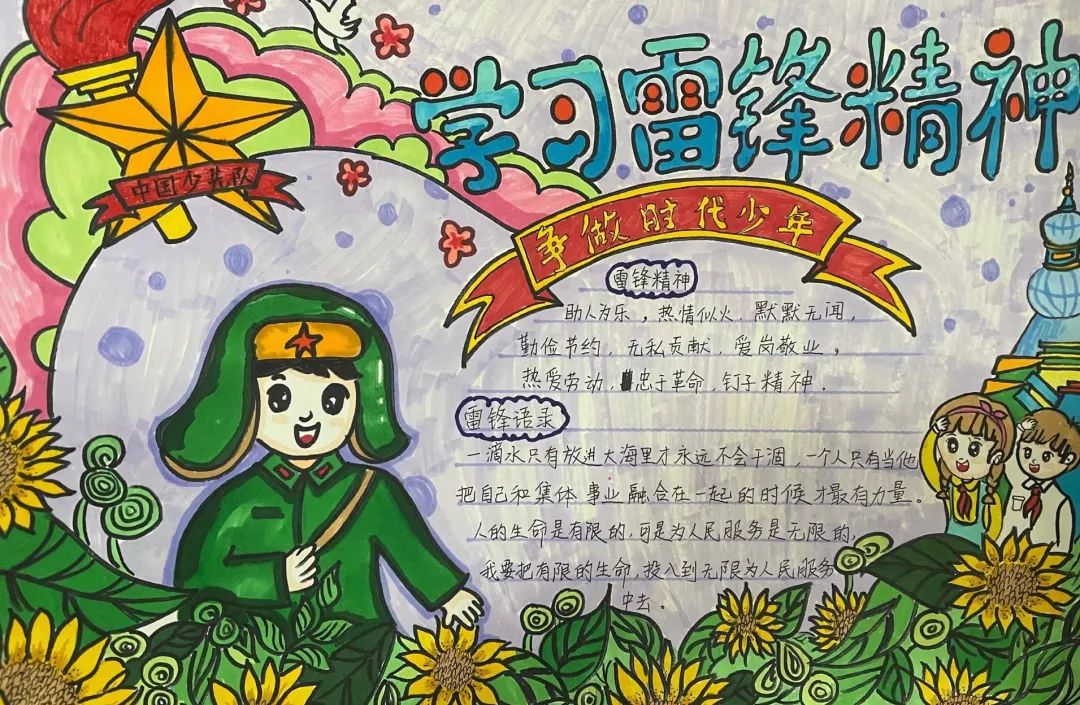 学习雷锋精神
中国少先队
争做时代少年
雷锋精神
助人为乐，热情似火．默默无闻，
勤俭节约．无私贡献．爱岗敬业。
热爱劳动，忠于革命，钉子精神．
雷锋语录
一滴水只有放进大海里才永远不会干涸，一个人只有当他
把自己和集体事业融合在一起的时候才最有力量。
人的生命是有限的，可是为人民服务是无限的，
我要把有限的生命，投入到无限为人民服务
中去．